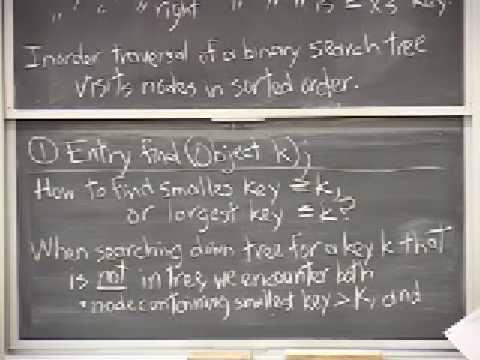 " , " " right " " is ≥ X's key.
Inorder traversal of a binary search tree
visits nodes in sorted order.
① Entry find(Object k);
How to find smallest key ≥ k,
or largest key ≤ k?
When searching down tree for a key k that
is not in tree, we encounter both
• node containing smallest key > k, and